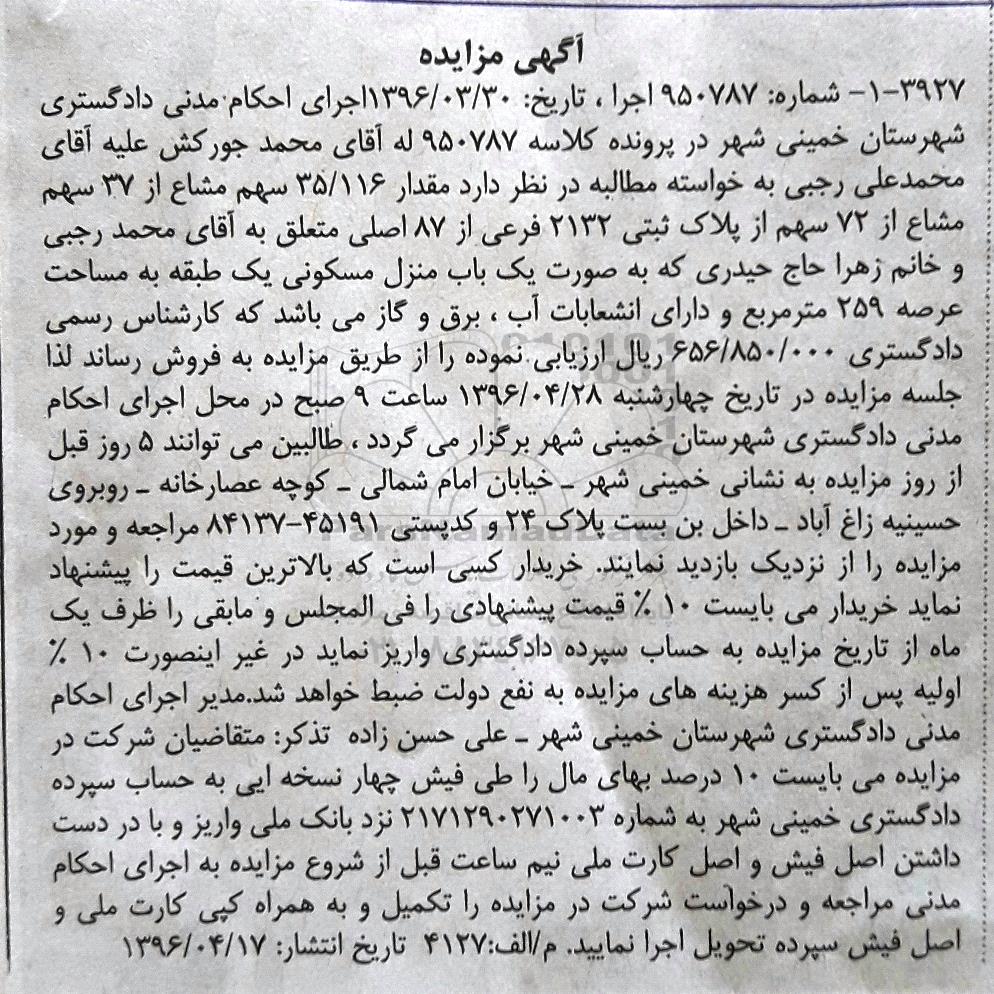 آگهی مزایده
۱-۳۹۲۷- شماره: ۹۵۰۷۸۷ اجرا ، تاریخ: ۱۳۹۶/۰۳/۳۰اجرای احکام مدنی دادگستری
شهرستان خمینی شهر در پرونده کلاسه ۹۵۰۷۸۷ له آقای محمد جورکش علیه آقای
محمدعلی رجبی به خواسته مطالبه در نظر دارد مقدار ۳۵/۱۱۶ سهم مشاع از ۳۷ سهم
مشاع از ۷۲ سهم از پلاک ثبتی ۲۱۳۲ فرعی از ۸۷ اصلی متعلق به آقای محمد رجبی
و خانم زهرا حاج حیدری که به صورت یک باب منزل مسکونی یک طبقه به مساحت
عرصه ۲۵۹ مترمربع و دارای انشعابات آب ، برق و گاز می باشد که کارشناس رسمی
دادگستری ۶۵۶/۸۵۰/۰۰۰ ریال ارزیابی نموده را از طریق مزایده به فروش رساند لذا
جلسه مزایده در تاریخ چهارشنبه ۱۳۹۶/۰۴/۲۸ ساعت ۹ صبح در محل اجرای احکام
مدنی دادگستری شهرستان خمینی شهر برگزار می گردد ، طالبین می توانند ۵ روز قبل
از روز مزایده به نشانی خمینی شهر ـ خیابان امام شمالی ـ کوچه عصارخانه ـ روبروی
حسینیه زاغ آباد ـ داخل بن بست پلاک ۲۴ و کدپستی ۴۵۱۹۱-۸۴۱۳۷ مراجعه و مورد
مزایده را از نزدیک بازدید نمایند. خریدار کسی است که بالاترین قیمت را پیشنهاد
نماید خریدار می بایست ۱۰ ٪ قیمت پیشنهادی را فی المجلس و مابقی را ظرف یک
ماه از تاریخ مزایده به حساب سپرده دادگستری واریز نماید در غیر اینصورت ۱۰ ٪
اولیه پس از کسر هزینه های مزایده به نفع دولت ضبط خواهد شد.مدیر اجرای احکام
مدنی دادگستری شهرستان خمینی شهر ـ علی حسن زاده تذکر: متقاضیان شرکت در
مزایده می بایست ۱۰ درصد بهای مال را طی فیش چهار نسخه ایی به حساب سپرده
دادگستری خمینی شهر به شماره ۲۱۷۱۲۹۰۲۷۱۰۰۳ نزد بانک ملی واریز و با در دست
داشتن اصل فیش و اصل کارت ملی نیم ساعت قبل از شروع مزایده به اجرای احکام
مدنی مراجعه و درخواست شرکت در مزایده را تکمیل و به همراه کپی کارت ملی و
اصل فیش سپرده تحویل اجرا نمایید. م/الف:۴۱۲۷ تاریخ انتشار: ۱۳۹۶/۰۴/۱۷
ParsNamadData